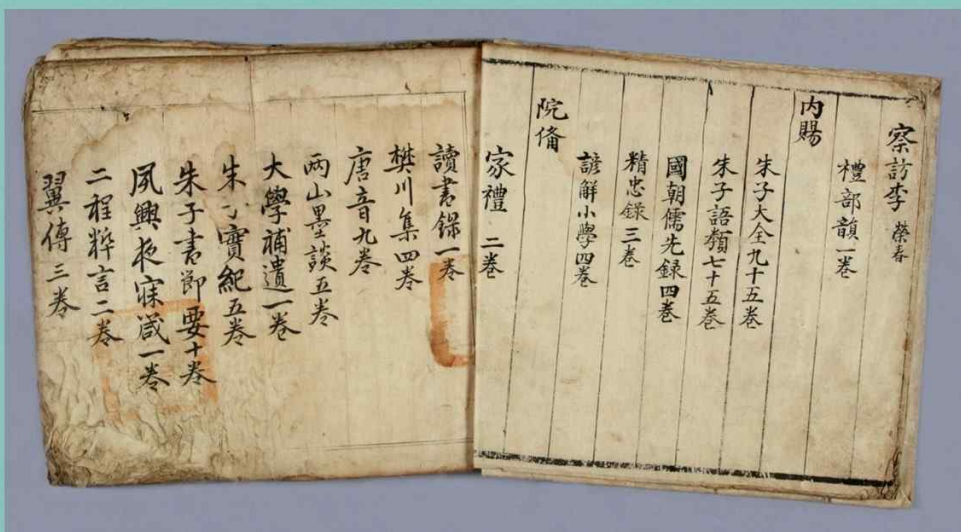 察訪李 榮春
禮部韻一巻
内賜
朱子大全九十五巻
朱子語類七十五巻
國朝儒先録四巻
精忠録三巻
諺解小學四巻
院俻
家禮 二巻
讀書錄一巻
樊川集四巻
唐音九巻
两山墨談五巻
大學補遺一巻
朱子實紀五巻
朱子書節要十巻
夙興夜寐箴一巻
二程粹言二巻
翼傳三巻